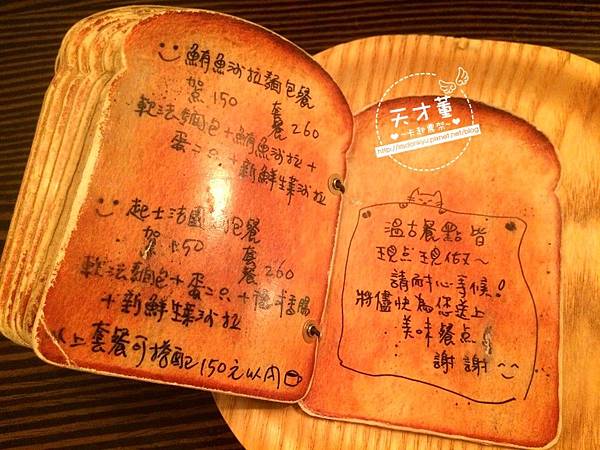 鮪魚沙拉麵包餐
150 套餐260
軟法麵包+鮪魚沙拉+
蛋二只+新鮮生菜沙拉
起士法國 包餐
150 套餐260
軟法麵包+蛋二只+德式香腸
+新鮮生菜沙拉
以上套餐可搭配150元以內
溫古餐點皆
現点現做~
請耐心等候!
將儘快為您送上
美味餐点
謝謝
天才董
~卡帥厲架~